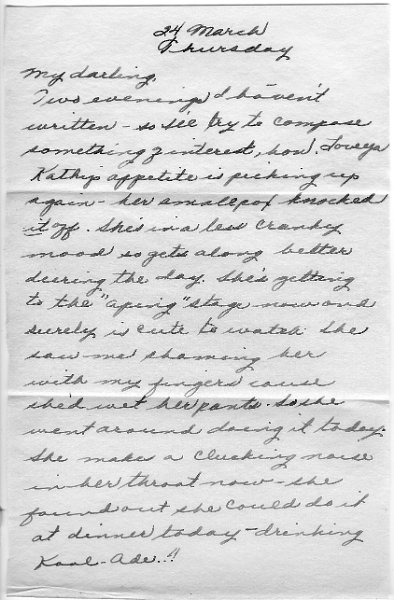 24 March
Thursday
My darling,
Two evenings I haven't
written - so I'll try to compose
something of interest, hon! Loveya
Kathys appetite is picking up
again - her smallpox knocked
it off. She's in a less cranky
mood so gets along better
during the day. She's getting
to the "aping" stage now and
surely is cute to watch. She
saw me shaming her
with my fingers cause
she'd wet her pants. So she
went around doing it today.
She makes a clucking noise
in her throat now - she
found out she could do it
at dinner today - drinking
Kool-Ade.!!